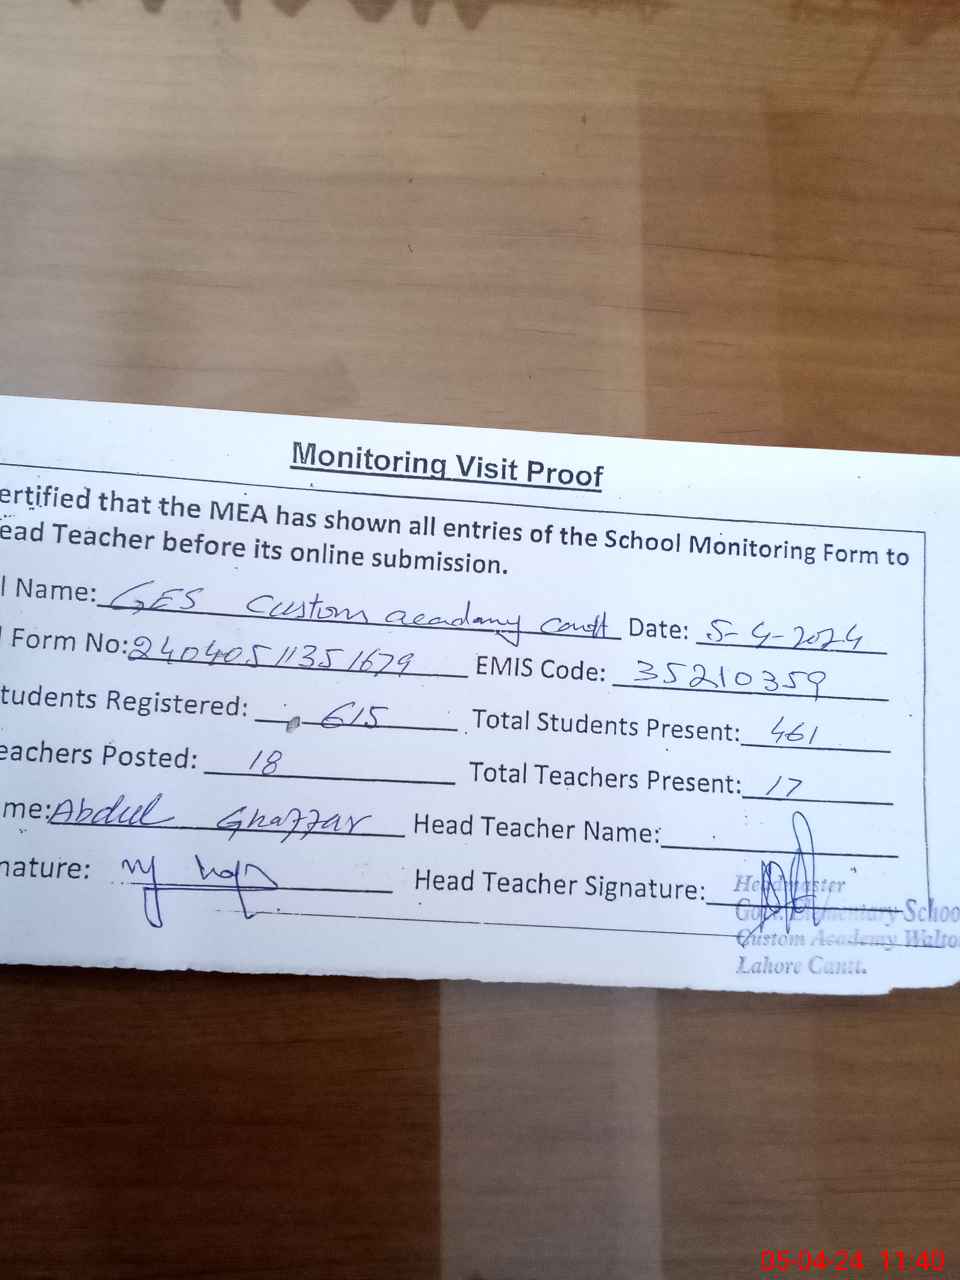 Monitoring Visit Proof
ertified that the MEA has shown all entries of the School Monitoring Form to
ead Teacher before its online submission.
l Name: GES Custom acadamy cantt Date: 5-4-2024
Form No: 24040511351679 EMIS Code: 35210359
tudents Registered: 615 Total Students Present: 461
eachers Posted: 18 Total Teachers Present: 17
me: Abdul Ghaffar Head Teacher Name:
nature: Head Teacher Signature:
Headmaster
Govt. Elementary Schoo
Custom Academy Walto
Lahore Cantt.
05-04-24 11:40